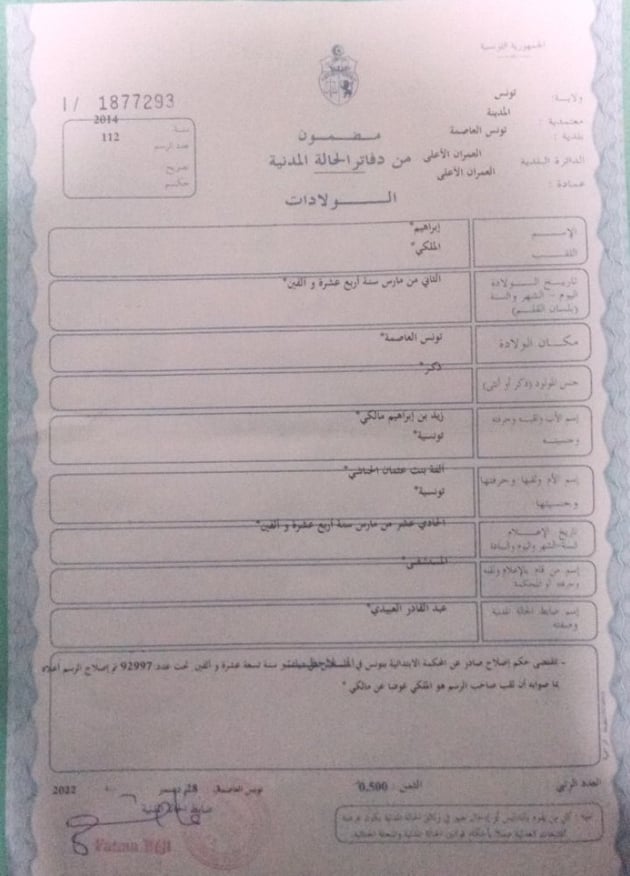 الجمهورية التونسية
ولاية: تونس
معتمدية: المدينة
بلدية: تونس العاصمة
الدائرة البلدية العمران الأعلى
عمادة: العمران الأعلى
I/ 1877293
سنة 2014
عدد الرسم 112
تصريح
حكم
مضمون
من دفاتر الحالة المدنية
الولادات
الإسم
إبراهيم*
اللقب
الملكي*
تاريخ الولادة
اليوم - الشهر والسنة
(بلسان القلم)
الثاني من مارس سنة أربع عشرة و ألفين*
مكان الولادة
تونس العاصمة*
جنس المولود (ذكر أو أنثى)
ذكر*
إسم الأب ولقبه وحرفته
وجنسيته
زيد بن إبراهيم مالكي*
تونسية*
إسم الأم ولقبها وحرفتها
وجنسيتها
ألفة بنت عثمان
تونسية*
تاريخ الإعلام
السنة-الشهر واليوم والساعة
الحادي عشر من مارس سنة أربع عشرة و ألفين*
إسم من قام بالإعلام ولقبه
وحرفته أو المحكمة
المستشفى*
إسم ضابط الحالة المدنية
وصفته
عبد القادر العبيدي*
ـ بمقتضى حكم إصلاح صادر عن المحكمة الابتدائية بتونس في سنة تسعة عشرة و ألفين تحت عدد 92997 تم إصلاح الرسم أعلاه
بما صوابه أن لقب صاحب الرسم هو الملكي عوضا عن مالكي *
العدد الرتبي
الثمن : 0.500
تونس العاصمة, ديسمبر 2022
ضابط الحالة المدنية
Fatma Béji
تنبيه : كل من يقوم بالتدليس أو إدخال تغيير في وثائق الحالة المدنية يكون عرضة
للتتبعات العدلية عملا بأحكام قوانين الحالة المدنية والمجلة الجنائية.